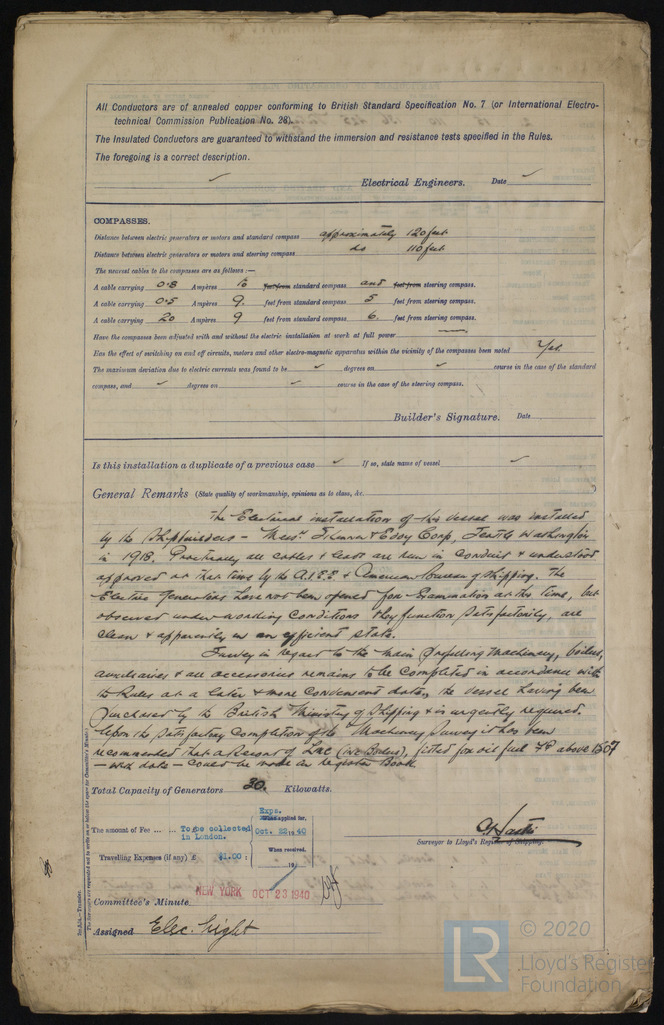 All Conductors are of annealed copper conforming to British Standard Specification No. 7 (or International Electro-
technical Commission Publication No. 28).
The Insulated Conductors are guaranteed to withstand the immersion and resistance tests specified in the Rules.
The foregoing is a correct description.
Electrical Engineers. Date
COMPASSES.
Distance between electric generators or motors and standard compass approximately 120 feet
Distance between electric generators or motors and steering compass do 110 feet
The nearest cables to the compasses are as follows:—
A cable carrying 0.8 Ampères to feet from standard compass and feet from steering compass.
A cable carrying 0.5 Ampères 9. feet from standard compass 5 feet from steering compass.
A cable carrying 20 Ampères 9 feet from standard compass 6. feet from steering compass.
Have the compasses been adjusted with and without the electric installation at work at full power
Has the effect of switching on and off circuits, motors and other electro-magnetic apparatus within the vicinity of the compasses been noted Yes.
The maximum deviation due to electric currents was found to be degrees on course in the case of the standard
compass, and degrees on course in the case of the steering compass.
Builder's Signature. Date
Is this installation a duplicate of a previous case If so, state name of vessel
General Remarks (State quality of workmanship, opinions as to class, &c.
The Electrical installation of this vessel was installed
by the Shipbuilders – Messrs Skinner & Eddy Corp, Seattle Washington
in 1918. Practically all cables & leads are run in conduit & understood
approved at that time by the A.I.E.E & American Bureau of Shipping. The
Electric Generators have not been opened for Examination at this time, but
observed under working conditions they function satisfactorily, are
clean & apparently in an efficient state.
Survey in regard to the main propelling machinery, boilers,
auxiliaries & all accessories remains to be completed in accordance with
the Rules at a later & more convenient date, the vessel having been
purchased by the British Ministry of Shipping & is urgently required.
Upon the satisfactory completion of the Machinery Survey it has been
recommended that a Record of LMC (WT Boilers), fitted for oil fuel FP above 150°F
– with date – could be made in Register Book.
Total Capacity of Generators 30. Kilowatts.
The amount of Fee ... ... To be collected
in London.
Exps.
applied for,
Oct. 22 1940
When received,
19
Travelling Expenses (if any) £ $1.00 :
Surveyor to Lloyd's Register of Shipping.
NEW YORK OCT 23 1940
Committee's Minute
Assigned Elec. Light
The Surveyors are requested not to write on or below the space for Committee's Minute.
© 2020
LR
Lloyd's Register
Foundation